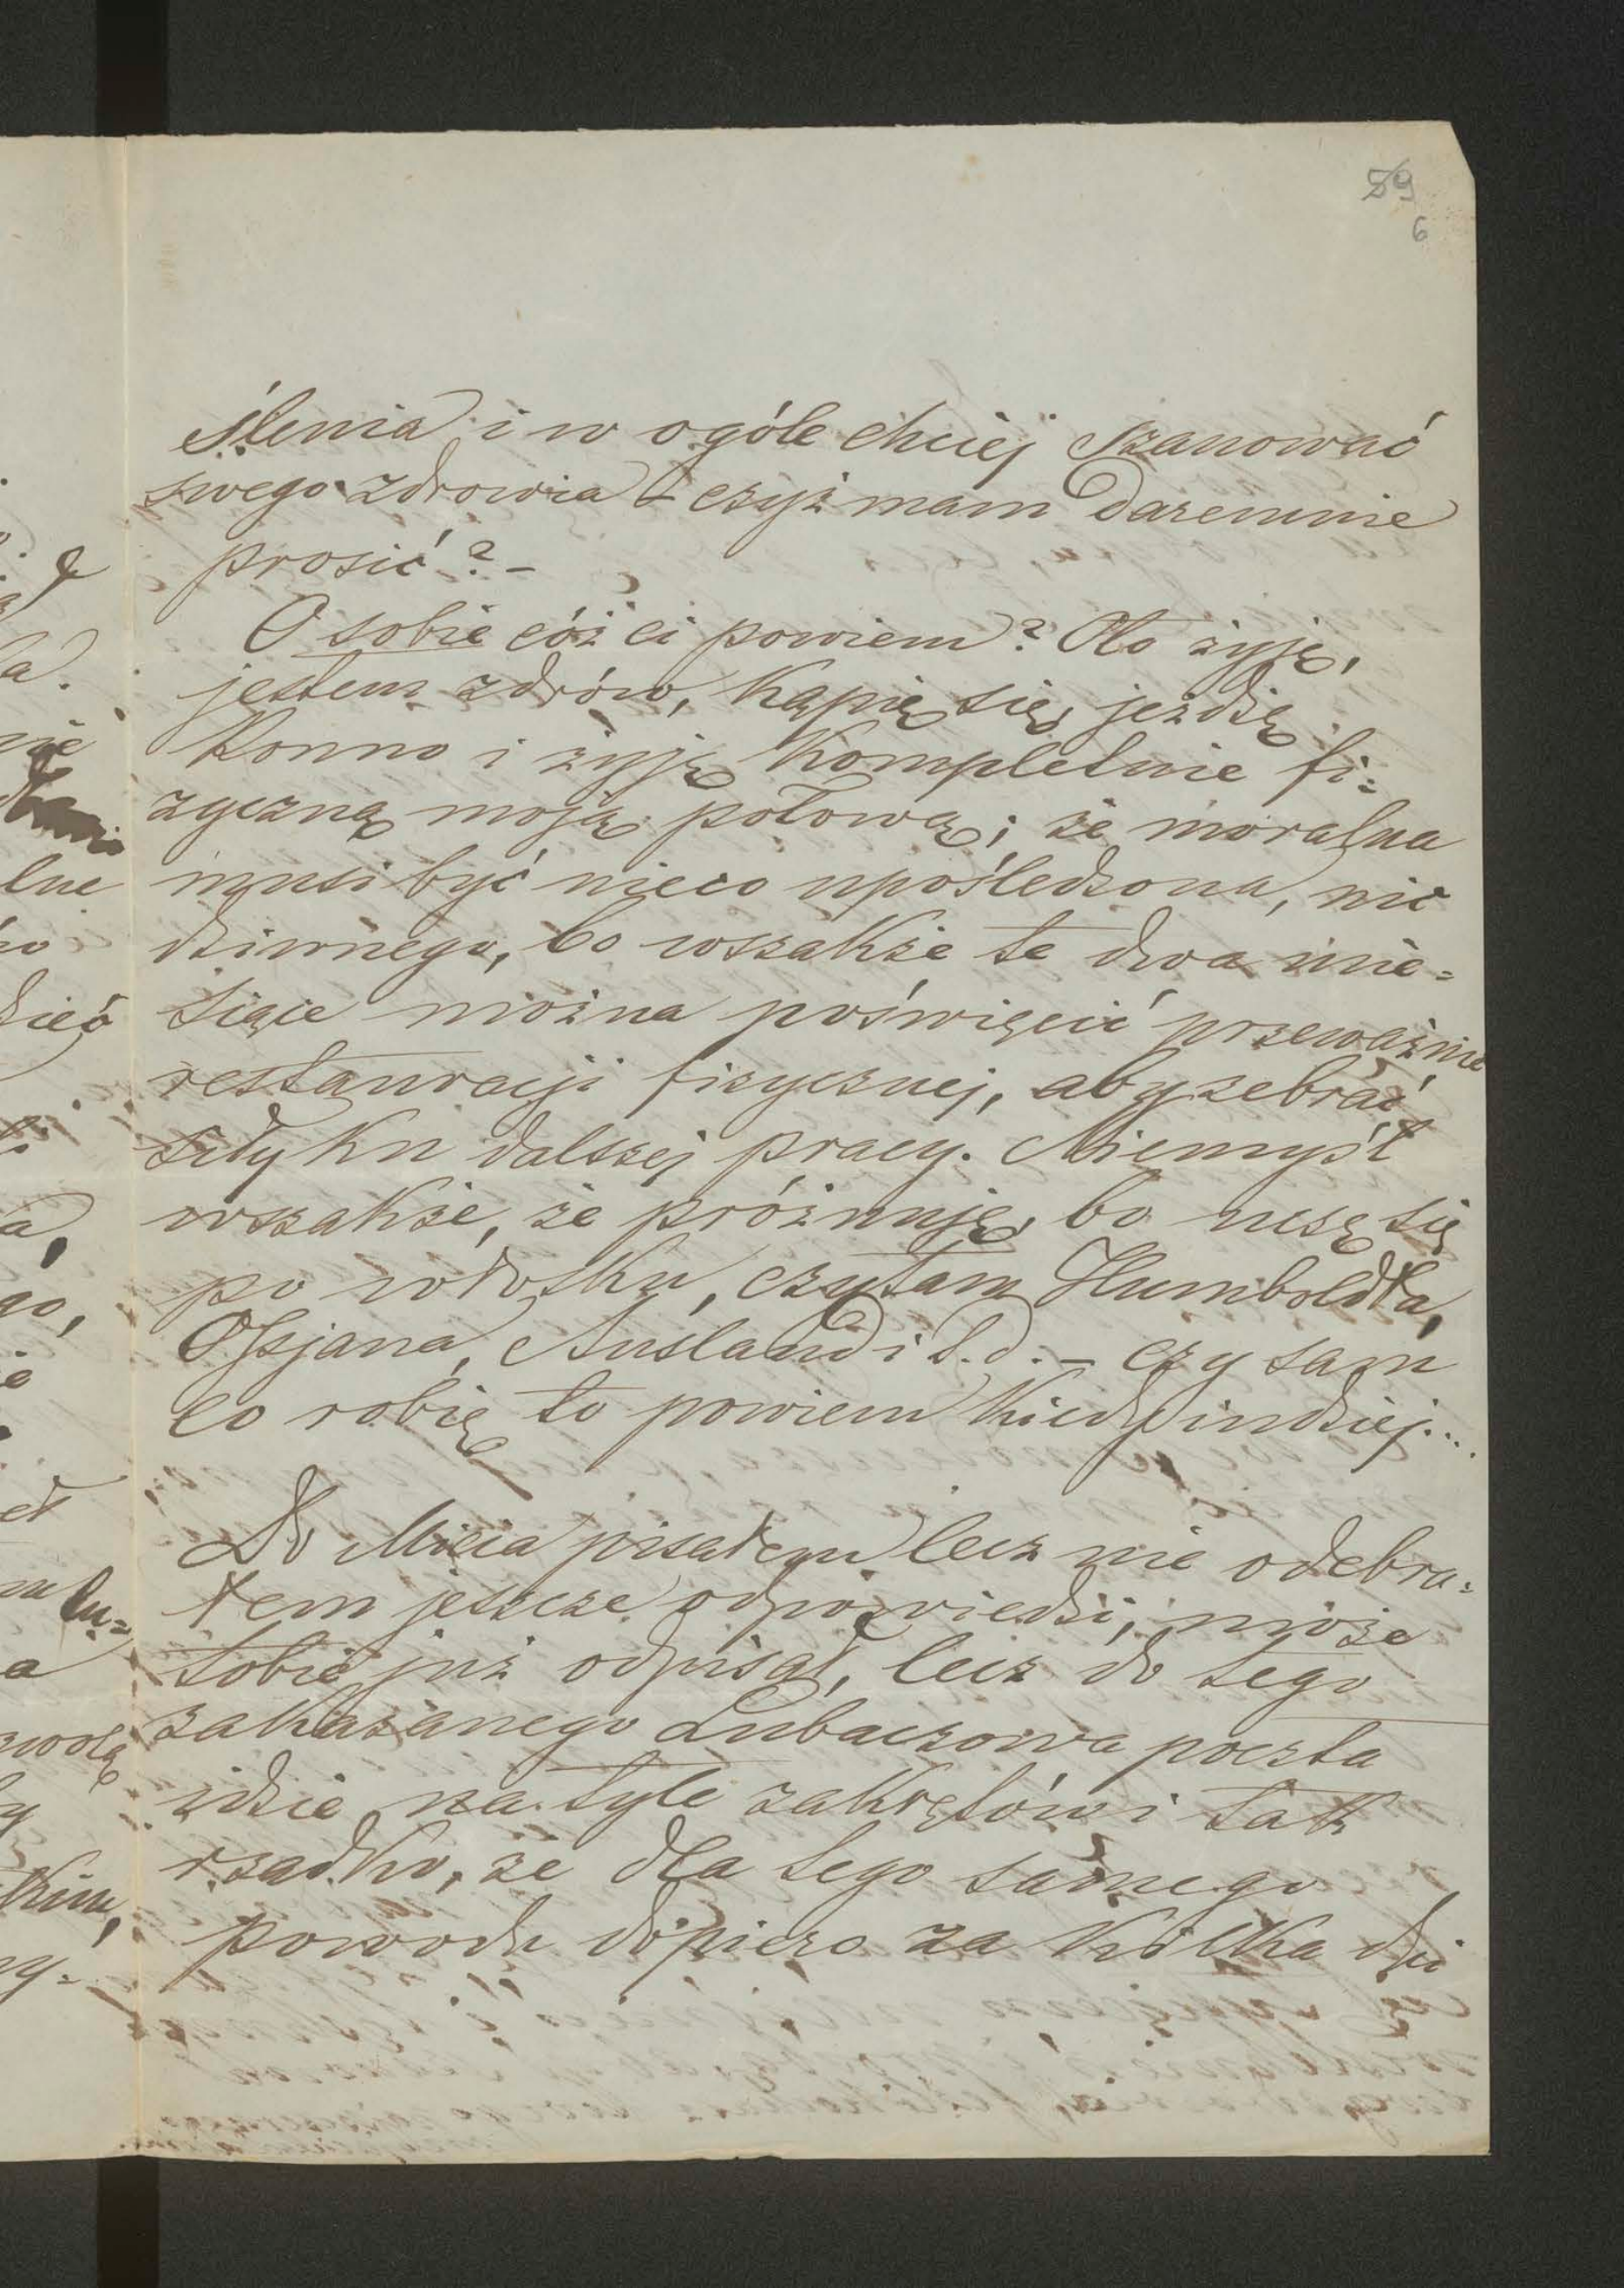 59
6
ślenia i w ogóle chciej szanować
swego zdrowia – czyż mam daremnie
prosić? –
O sobie cóż ci powiem? Oto żyję,
jestem zdrów, kąpię się, jeżdżę
konno i żyję kompletnie fi=
zyczną moją połową; że moralna
musi być nieco upośledzona, nic
dziwnego, bo wszakże te dwa mie=
siące można poświęcić przeważnie
restauracji fizycznej, aby zebrać
siły ku dalszej pracy. Niemyśl
wszakże, że próżnuję, bo uczę się
po włosku, czytam Humboldta,
Ossjana, Ausland i t.d. – czy sam
co robię to powiem kiedyindziej....
Do Micia pisałem lecz nie odebra=
łem jeszcze odpowiedzi, może
tobie już odpisał, lecz do tego
zakazanego Lubaczowa poczta
idzie na tyle zakrętów i tak
rzadko, że dla tego samego
powodu dopiero za kilka dni